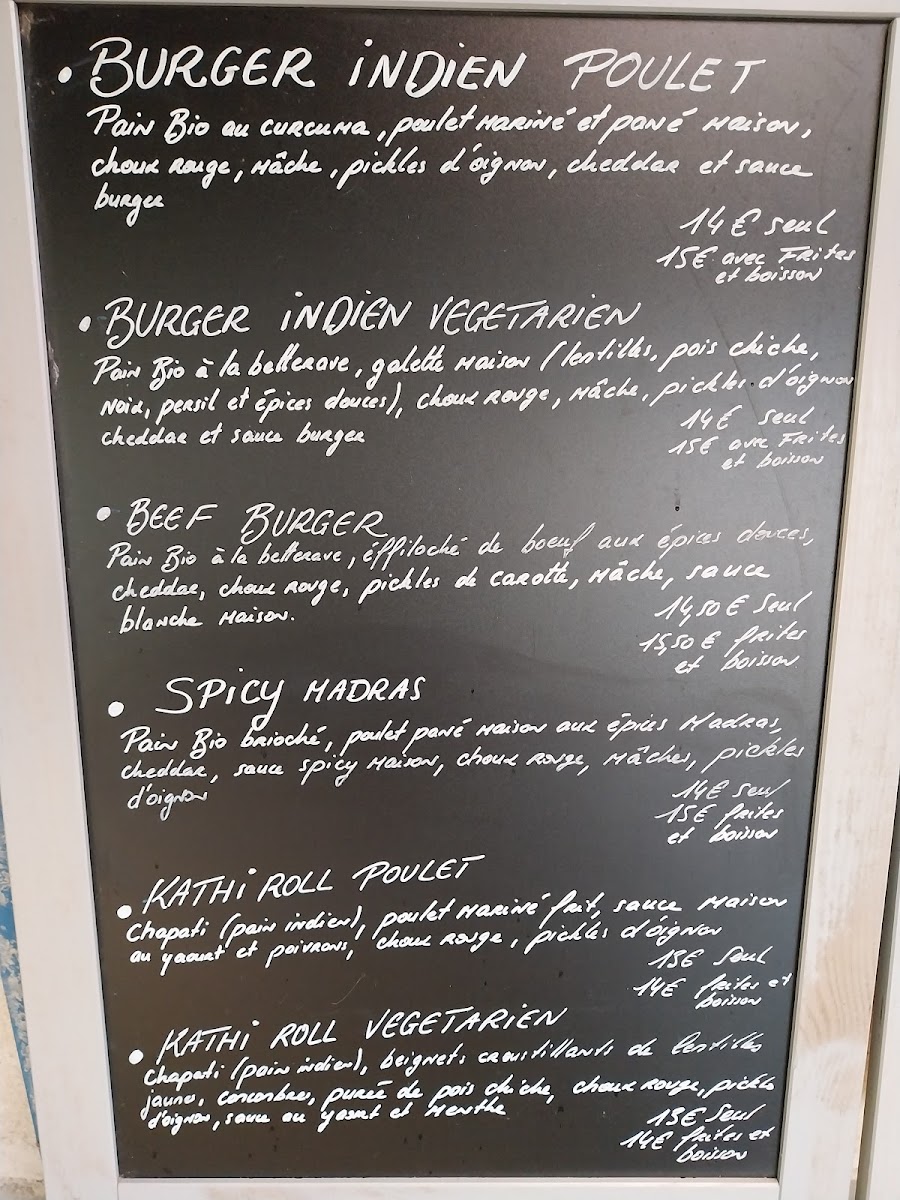 • BURGER INDIEN POULET
Pain Bio au curcuma, poulet mariné et pané maison,
choux rouge, mâche, pickles d'oignon, cheddar et sauce
burger
14€ seul
15€ avec Frites
et boisson
• BURGER INDIEN VEGETARIEN
Pain Bio à la betterave, galette maison (lentilles, pois chiche,
noix, persil et épices douces), choux rouge, mâche, pickles d'oignon
cheddar et sauce burger
14€ seul
15€ avec Frites
et boisson
• BEEF BURGER
Pain Bio à la betterave, éffiloché de boeuf aux épices douces,
cheddar, choux rouge, pickles de carotte, mâche, sauce
blanche maison.
14,50€ seul
15,50€ frites
et boisson
• SPICY MADRAS
Pain Bio brioché, poulet pané maison aux épices Madras,
cheddar, sauce spicy maison, choux rouge, mâches, pickles
d'oignon
14€ seul
15€ frites
et boisson
• KATHI ROLL POULET
Chapati (pain indien), poulet mariné frit, sauce maison
au yaourt et poivrons, choux rouge, pickles d'oignon
13€ seul
14€ frites et
boisson
• KATHI ROLL VEGETARIEN
Chapati (pain indien), beignets croustillants de lentilles
jaunes, concombre, purée de pois chiche, choux rouge, pickles
d'oignon, sauce au yaourt et menthe
13€ seul
14€ frites et
boisson